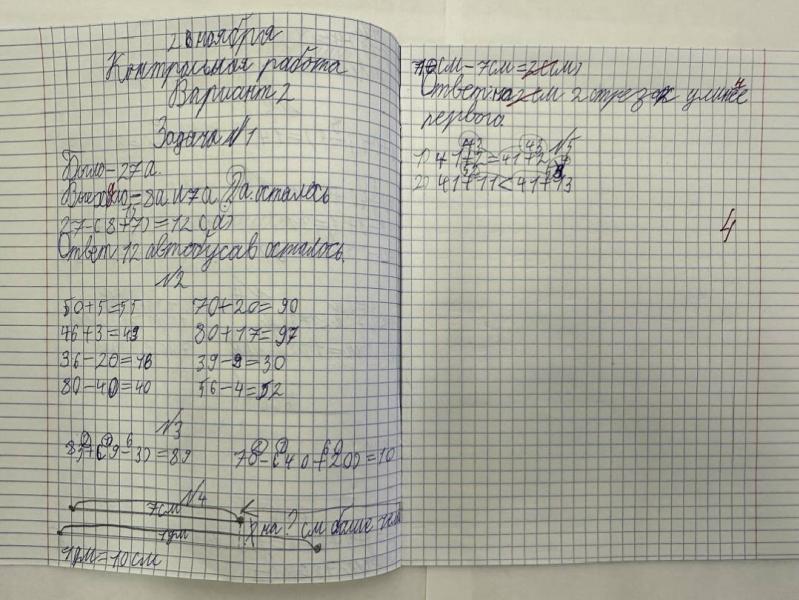 28 ноября
Контрольная работа
Вариант 2
Задача №1
Было – 27 а.
Выехало = 8а и 7а ? а. осталось
27-(8+7)=12 (а)
Ответ: 12 автобусав осталось.
№2
50+5=55 70+20=90
46+3=49 80+17=97
36-20=16 39-9=30
80-40=40 56-4=52
№3
83+(9-3)=89 70-(40+20)=10
№4
7см
1дм на ? см больше чем
1дм=10см
10см-7см= (см)
Ответ: на см 2 отрезок длиннее
первого.
№5
43 43
1) 41+2=41+2
2) 41+11<41+13
4